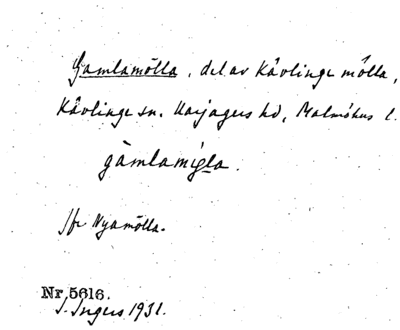 Gamlamölla, del av Kävlinge mölla,
Kävlinge sn. Harjagers hd, Malmöhus l.
gàmlamigla.
Jfr Nyamölla.
Nr 5616.
I. Ingers 1931.